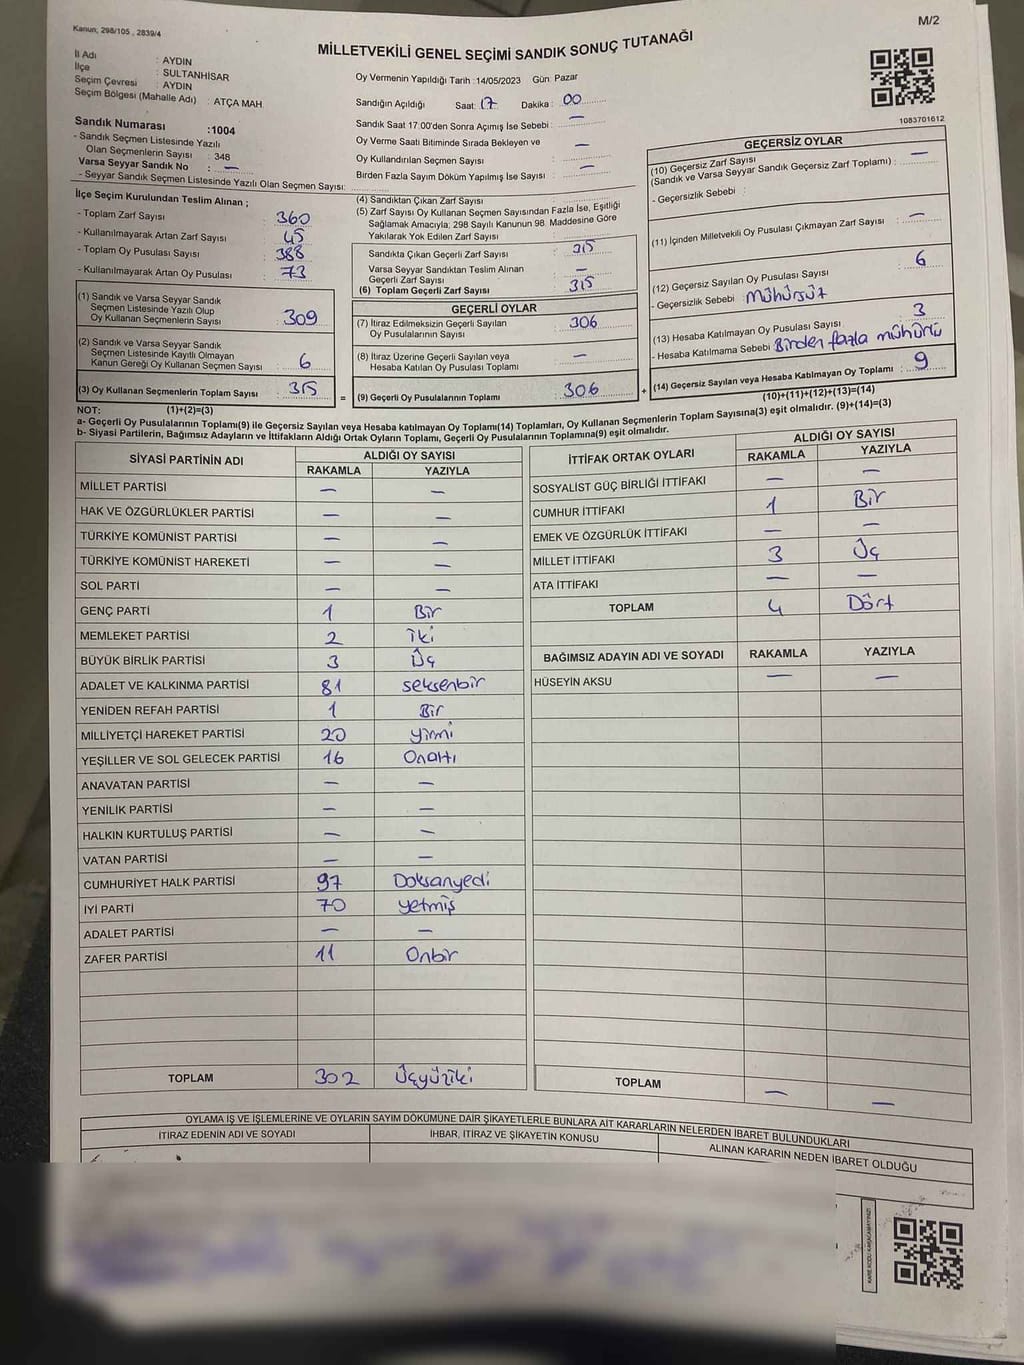 Kanun, 298/105 , 2839/4
M/2
MİLLETVEKİLİ GENEL SEÇİMİ SANDIK SONUÇ TUTANAĞI
İl Adı : AYDIN
İlçe : SULTANHİSAR
Seçim Çevresi : AYDIN
Seçim Bölgesi (Mahalle Adı) : ATÇA MAH.
Sandık Numarası :1004
- Sandık Seçmen Listesinde Yazılı
Olan Seçmenlerin Sayısı : 348
Varsa Seyyar Sandık No : —
- Seyyar Sandık Seçmen Listesinde Yazılı Olan Seçmen Sayısı:
Oy Vermenin Yapıldığı Tarih :14/05/2023 Gün: Pazar
Sandığın Açıldığı Saat: 17 Dakika : 00
Sandık Saat 17.00'den Sonra Açımış İse Sebebi : —
Oy Verme Saati Bitiminde Sırada Bekleyen ve
Oy Kullandırılan Seçmen Sayısı : —
Birden Fazla Sayım Döküm Yapılmış İse Sayısı : —
1083701612
İlçe Seçim Kurulundan Teslim Alınan ;
- Toplam Zarf Sayısı : 360
- Kullanılmayarak Artan Zarf Sayısı : 45
- Toplam Oy Pusulası Sayısı : 388
- Kullanılmayarak Artan Oy Pusulası : 73
(1) Sandık ve Varsa Seyyar Sandık
Seçmen Listesinde Yazılı Olup
Oy Kullanan Seçmenlerin Sayısı : 309
(2) Sandık ve Varsa Seyyar Sandık
Seçmen Listesinde Kayıtlı Olmayan
Kanun Gereği Oy Kullanan Seçmen Sayısı : 6
(3) Oy Kullanan Seçmenlerin Toplam Sayısı : 315
(1)+(2)=(3)
(4) Sandıktan Çıkan Zarf Sayısı :
(5) Zarf Sayısı Oy Kullanan Seçmen Sayısından Fazla İse, Eşitliği
Sağlamak Amacıyla; 298 Sayılı Kanunun 98. Maddesine Göre
Yakılarak Yok Edilen Zarf Sayısı :
Sandıkta Çıkan Geçerli Zarf Sayısı : 315
Varsa Seyyar Sandıktan Teslim Alınan
Geçerli Zarf Sayısı : —
(6) Toplam Geçerli Zarf Sayısı : 315
GEÇERLİ OYLAR
(7) İtiraz Edilmeksizin Geçerli Sayılan
Oy Pusulalarının Sayısı : 306
(8) İtiraz Üzerine Geçerli Sayılan veya
Hesaba Katılan Oy Pusulası Toplamı : —
= (9) Geçerli Oy Pusulalarının Toplamı : 306 +
GEÇERSİZ OYLAR
(10) Geçersiz Zarf Sayısı
(Sandık ve Varsa Seyyar Sandık Geçersiz Zarf Toplamı) : —
- Geçersizlik Sebebi :
(11) İçinden Milletvekili Oy Pusulası Çıkmayan Zarf Sayısı : —
(12) Geçersiz Sayılan Oy Pusulası Sayısı : 6
- Geçersizlik Sebebi : Mühürsüz
(13) Hesaba Katılmayan Oy Pusulası Sayısı : 3
- Hesaba Katılmama Sebebi : Birden fazla mühürlü
(14) Geçersiz Sayılan veya Hesaba Katılmayan Oy Toplamı : 9
(10)+(11)+(12)+(13)=(14)
NOT:
a- Geçerli Oy Pusulalarının Toplamı(9) ile Geçersiz Sayılan veya Hesaba katılmayan Oy Toplamı(14) Toplamları, Oy Kullanan Seçmenlerin Toplam Sayısına(3) eşit olmalıdır. (9)+(14)=(3)
b- Siyasi Partilerin, Bağımsız Adayların ve İttifakların Aldığı Ortak Oyların Toplamı, Geçerli Oy Pusulalarının Toplamına(9) eşit olmalıdır.
SİYASİ PARTİNİN ADI
ALDIĞI OY SAYISI
RAKAMLA YAZIYLA
MİLLET PARTİSİ — —
HAK VE ÖZGÜRLÜKLER PARTİSİ — —
TÜRKİYE KOMÜNİST PARTİSİ — —
TÜRKİYE KOMÜNİST HAREKETİ — —
SOL PARTİ — —
GENÇ PARTİ 1 Bir
MEMLEKET PARTİSİ 2 İki
BÜYÜK BİRLİK PARTİSİ 3 Üç
ADALET VE KALKINMA PARTİSİ 81 seksenbir
YENİDEN REFAH PARTİSİ 1 Bir
MİLLİYETÇİ HAREKET PARTİSİ 20 yirmi
YEŞİLLER VE SOL GELECEK PARTİSİ 16 Onaltı
ANAVATAN PARTİSİ — —
YENİLİK PARTİSİ — —
HALKIN KURTULUŞ PARTİSİ — —
VATAN PARTİSİ — —
CUMHURİYET HALK PARTİSİ 97 Doksanyedi
İYİ PARTİ 70 yetmiş
ADALET PARTİSİ — —
ZAFER PARTİSİ 11 Onbir
TOPLAM 302 Üçyüziki
İTTİFAK ORTAK OYLARI
ALDIĞI OY SAYISI
RAKAMLA YAZIYLA
SOSYALİST GÜÇ BİRLİĞİ İTTİFAKI — —
CUMHUR İTTİFAKI 1 Bir
EMEK VE ÖZGÜRLÜK İTTİFAKI — —
MİLLET İTTİFAKI 3 Üç
ATA İTTİFAKI — —
TOPLAM 4 Dört
BAĞIMSIZ ADAYIN ADI VE SOYADI RAKAMLA YAZIYLA
HÜSEYİN AKSU — —
TOPLAM — —
OYLAMA İŞ VE İŞLEMLERİNE VE OYLARIN SAYIM DÖKÜMÜNE DAİR ŞİKAYETLERLE BUNLARA AİT KARARLARIN NELERDEN İBARET BULUNDUKLARI
İTİRAZ EDENİN ADI VE SOYADI
İHBAR, İTİRAZ VE ŞİKAYETİN KONUSU
ALINAN KARARIN NEDEN İBARET OLDUĞU